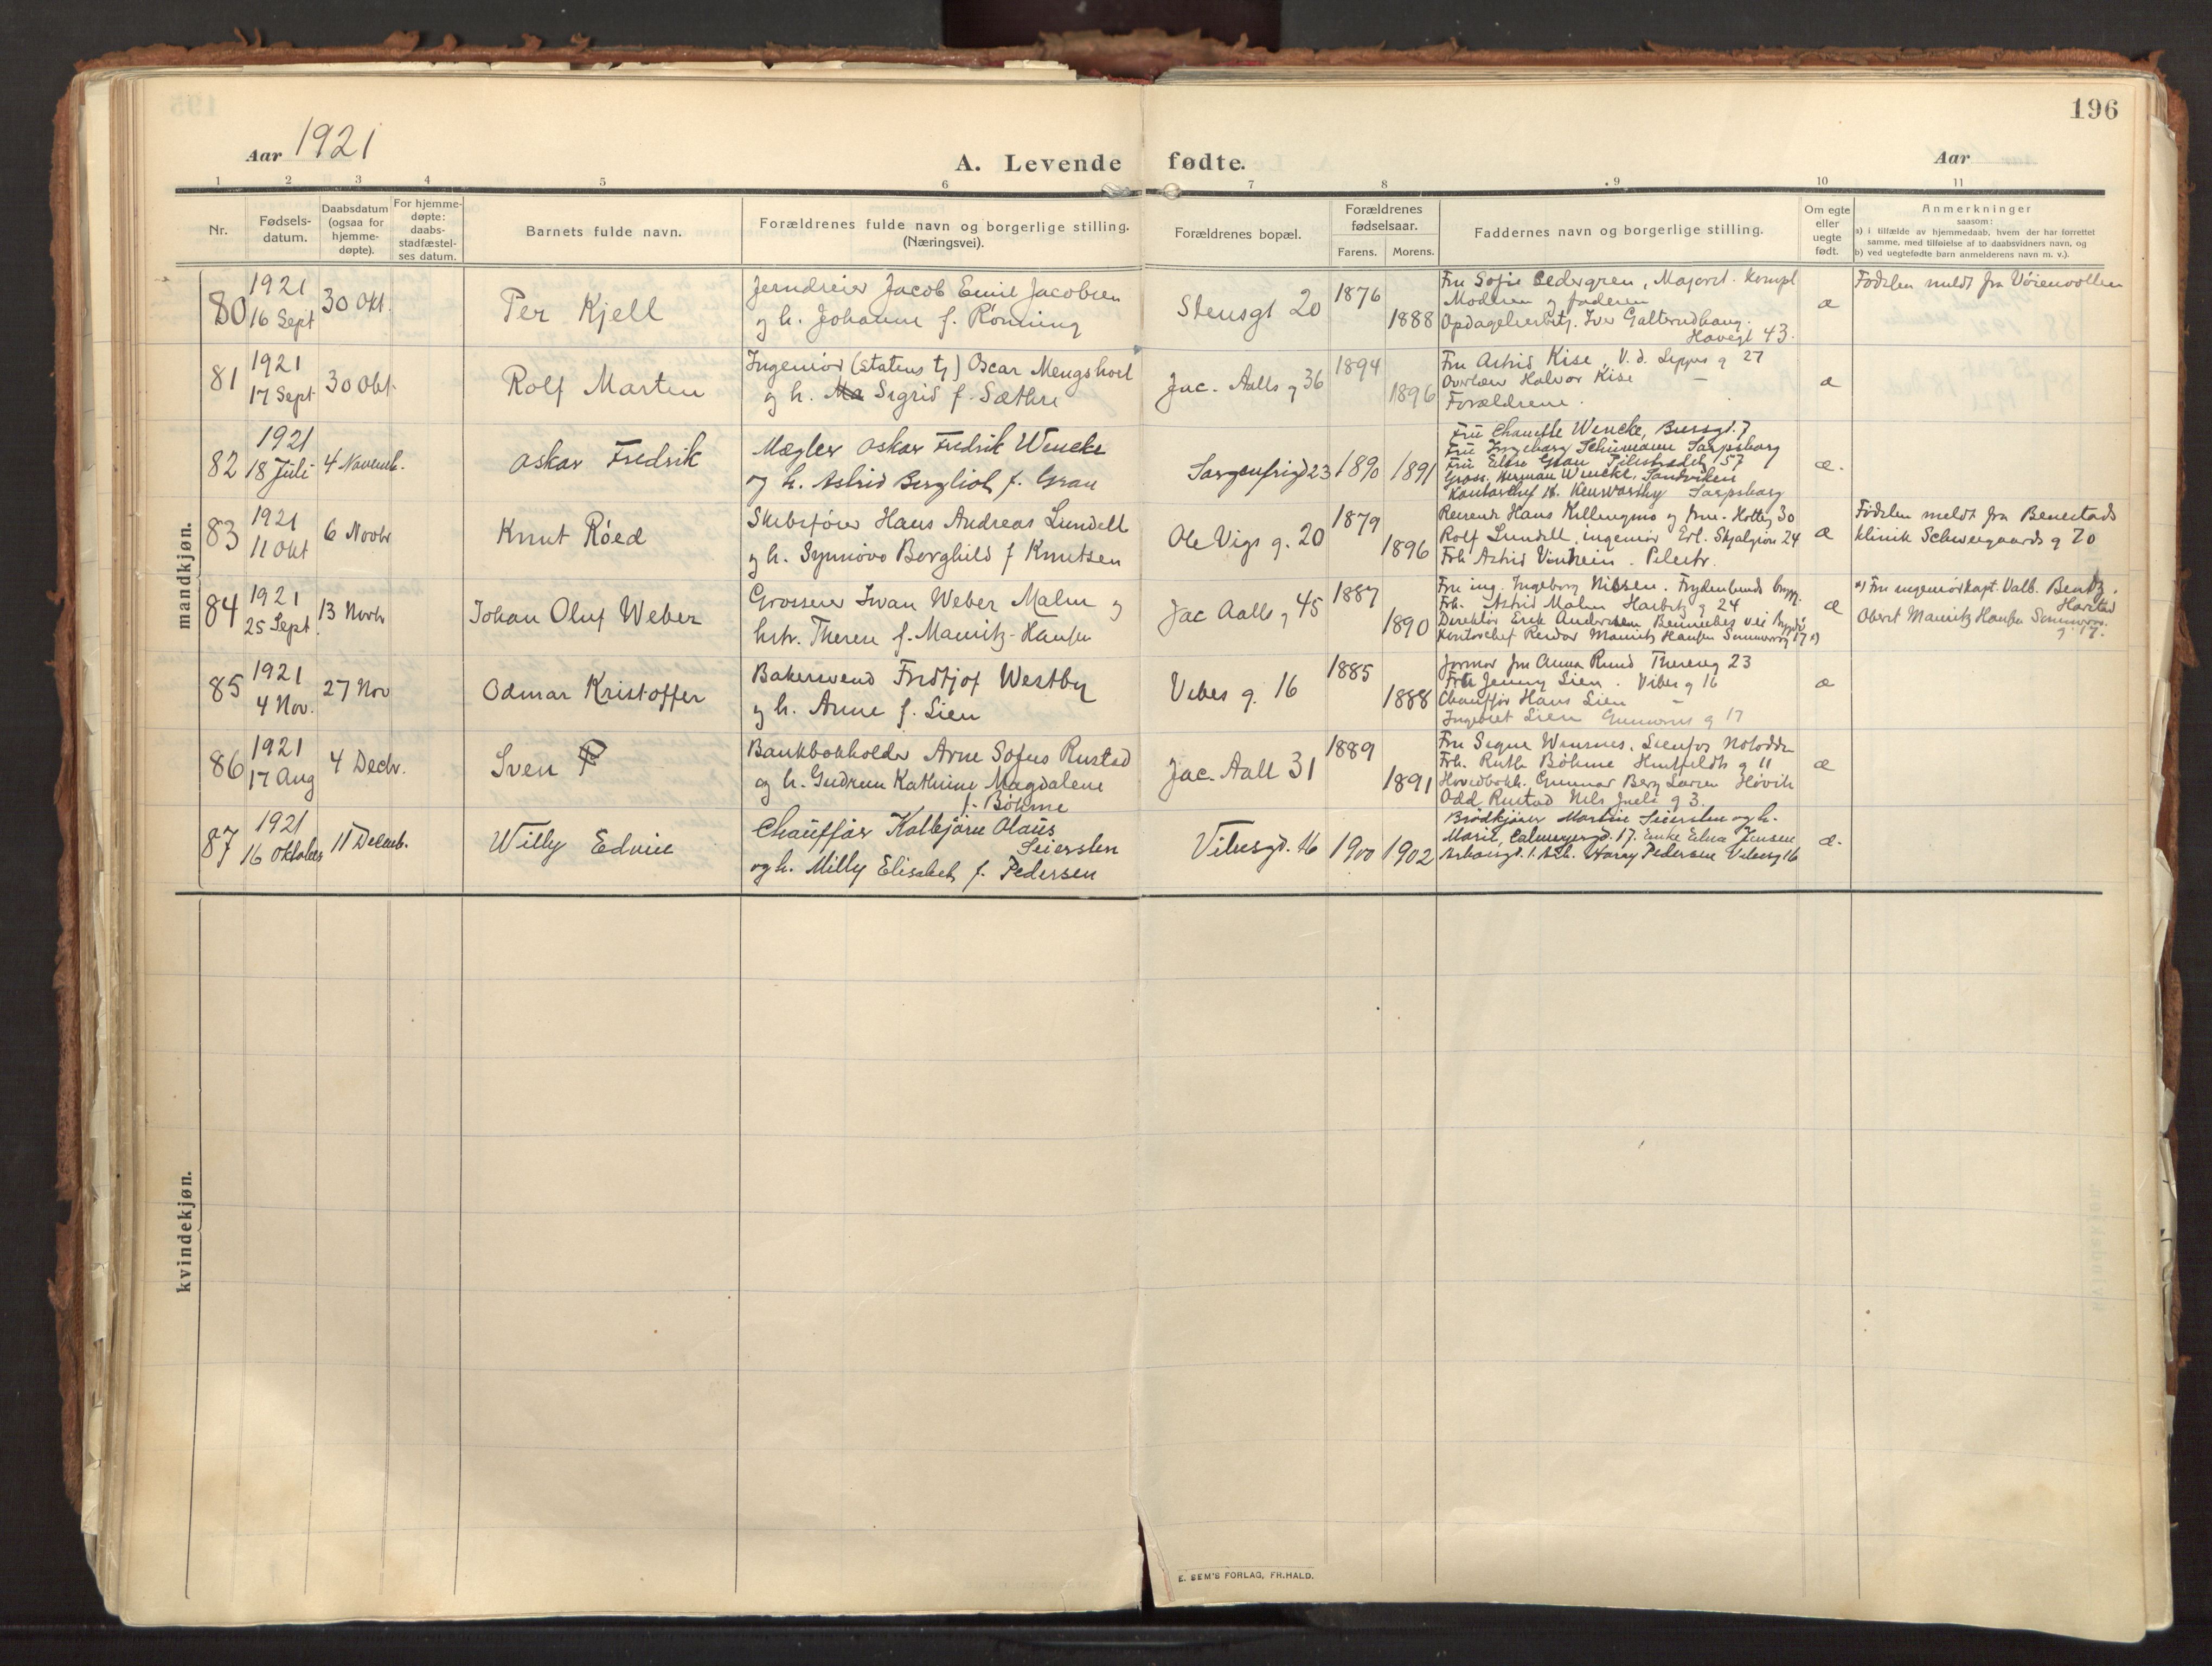 196
Aar 1921
A. Levende fødte.
Aar
1 2 3 4 5 6 7 8 9 10 11
Nr.
Fødsels-
datum.
Daabsdatum
(ogsaa for
hjemme-
døpte).
For hjemme-
døpte:
daabs-
stadfæstel-
ses datum.
Barnets fulde navn.
Forældrenes fulde navn og borgerlige stilling.
(Næringsvei).
Forældrenes bopæl.
Forældrenes
fødselsaar.
Farens. Morens.
Faddernes navn og borgerlige stilling.
Om egte
eller
uegte
født.
Anmerkninger
saasom:
a) i tilfælde av hjemmedaab, hvem der har forrettet
samme, med tilføielse af to daabsvidners navn, og
b) ved uegtefødte barn anmelderens navn m. v.).
mandkjøn.
80
1921
16 Sept
30 Okt.
Per Kjell
Jacob Emil Jacobsen
og h. Johanne f. Rønning
Stensgt 20
1876
1888
Fru Sofie Cedergren, Majorst.
Moderen og faderen
Iver Galterudhaug.
Havegt 43.
æ
Fødslen meldt fra Vøienvolden
81
1921
17 Sept
30 Okt.
Rolf Marten
Ingeniør (Statens tj) Oscar Mengshoel
og h. Sigrid f. Sæthre
Jac. Aalls g 36
1894
1896
Fru Astrid Kise, g 27
Halvor Kise —
Forældrene.
æ
82
1921
18 Juli
4 Novemb.
Oskar Fredrik
Mægler Oskar Fredrik Wencke
og h. Astrid Bergliot f. Gran
Sorgenfrigd 23
1890 1891
Fru Wencke, 7
Fru Ingeborg Schumann Sarpsborg
Fru Gran Pilestrædet 57
Gross. Herman Wencke, Sandviken
Kontorchef K. Kenworthy Sarpsborg
æ.
83
1921
11 Okt
6 Novbr
Knut Röed
Skibsfører Hans Andreas Lundell
og h. Synnöve Borghild f Knutsen
Ole Vigs g. 20
1879
1896
Reisende Hans Killingmo og frue. 30
Rolf Lundell, ingeniør Erl. Skjalgsøn 24
Frk Astrid
æ
Fødslen meldt fra Benestads
klinik Schweigaards g 70
84
1921
25 Sept.
13 Novbr
Johan Oluf Weber
Grosserer Iwan Weber Malm og
hstr. Therese f. Mauritz-Hansen
Jac Aalls g 45
1887
1890
Fru ing. Ingeborg Nilssen. Frydenlunds brygg.
Frk. Astrid Malm Harbitz g 24
Direktør Erik Anderssen Bennebes vei Bygdø
Kontorchef Reidar Mauritz Hansen 17 *)
æ
*) Fru ingeniørkapt. Valb. Bentz.
Harstad
Oberst Mauritz Hansen
g 17.
85
1921
4 Nov.
27 Nov
Odmar Kristoffer
Bakersvend Fridtjof Westby
og h. Anne f. Lien
Vibes g. 16
1885
1888
Farmor fru Anna Ruud Thereseg 23
Frk Jenny Lien. Vibes g 16
Chauffør Hans Lien —
Ingebret Lien g 17
æ
86
1921
17 Aug
4 Decbr.
Sven
Bankbokholder Arne Sofus Rustad
og h. Gudrun Kathrine Magdalene
f. Böhme
Jac. Aall 31
1889
1891
Fru Signe Notodden
Frk. Ruth Böhme Huitfeldts g 11
Hovedbokh. Gunnar Berg Larsen Høvik
Odd Rustad Nils Juels g 3.
æ
87
1921
16 Oktober
11 Decemb.
Willy Edvin
Chauffør Kolbjörn Olaus
Seiersten
og h. Milly Elisabeth f. Pedersen
Vibesgd. 16
1900 1902
Brødkjører Martin Seiersten og h.
Marie, Calmeyersgd. 17. Enke Edna Jensen
Arb. Harry Pedersen Vibesg 16
æ.
kvindekjøn.
E. SEM'S FORLAG, FR.HALD.